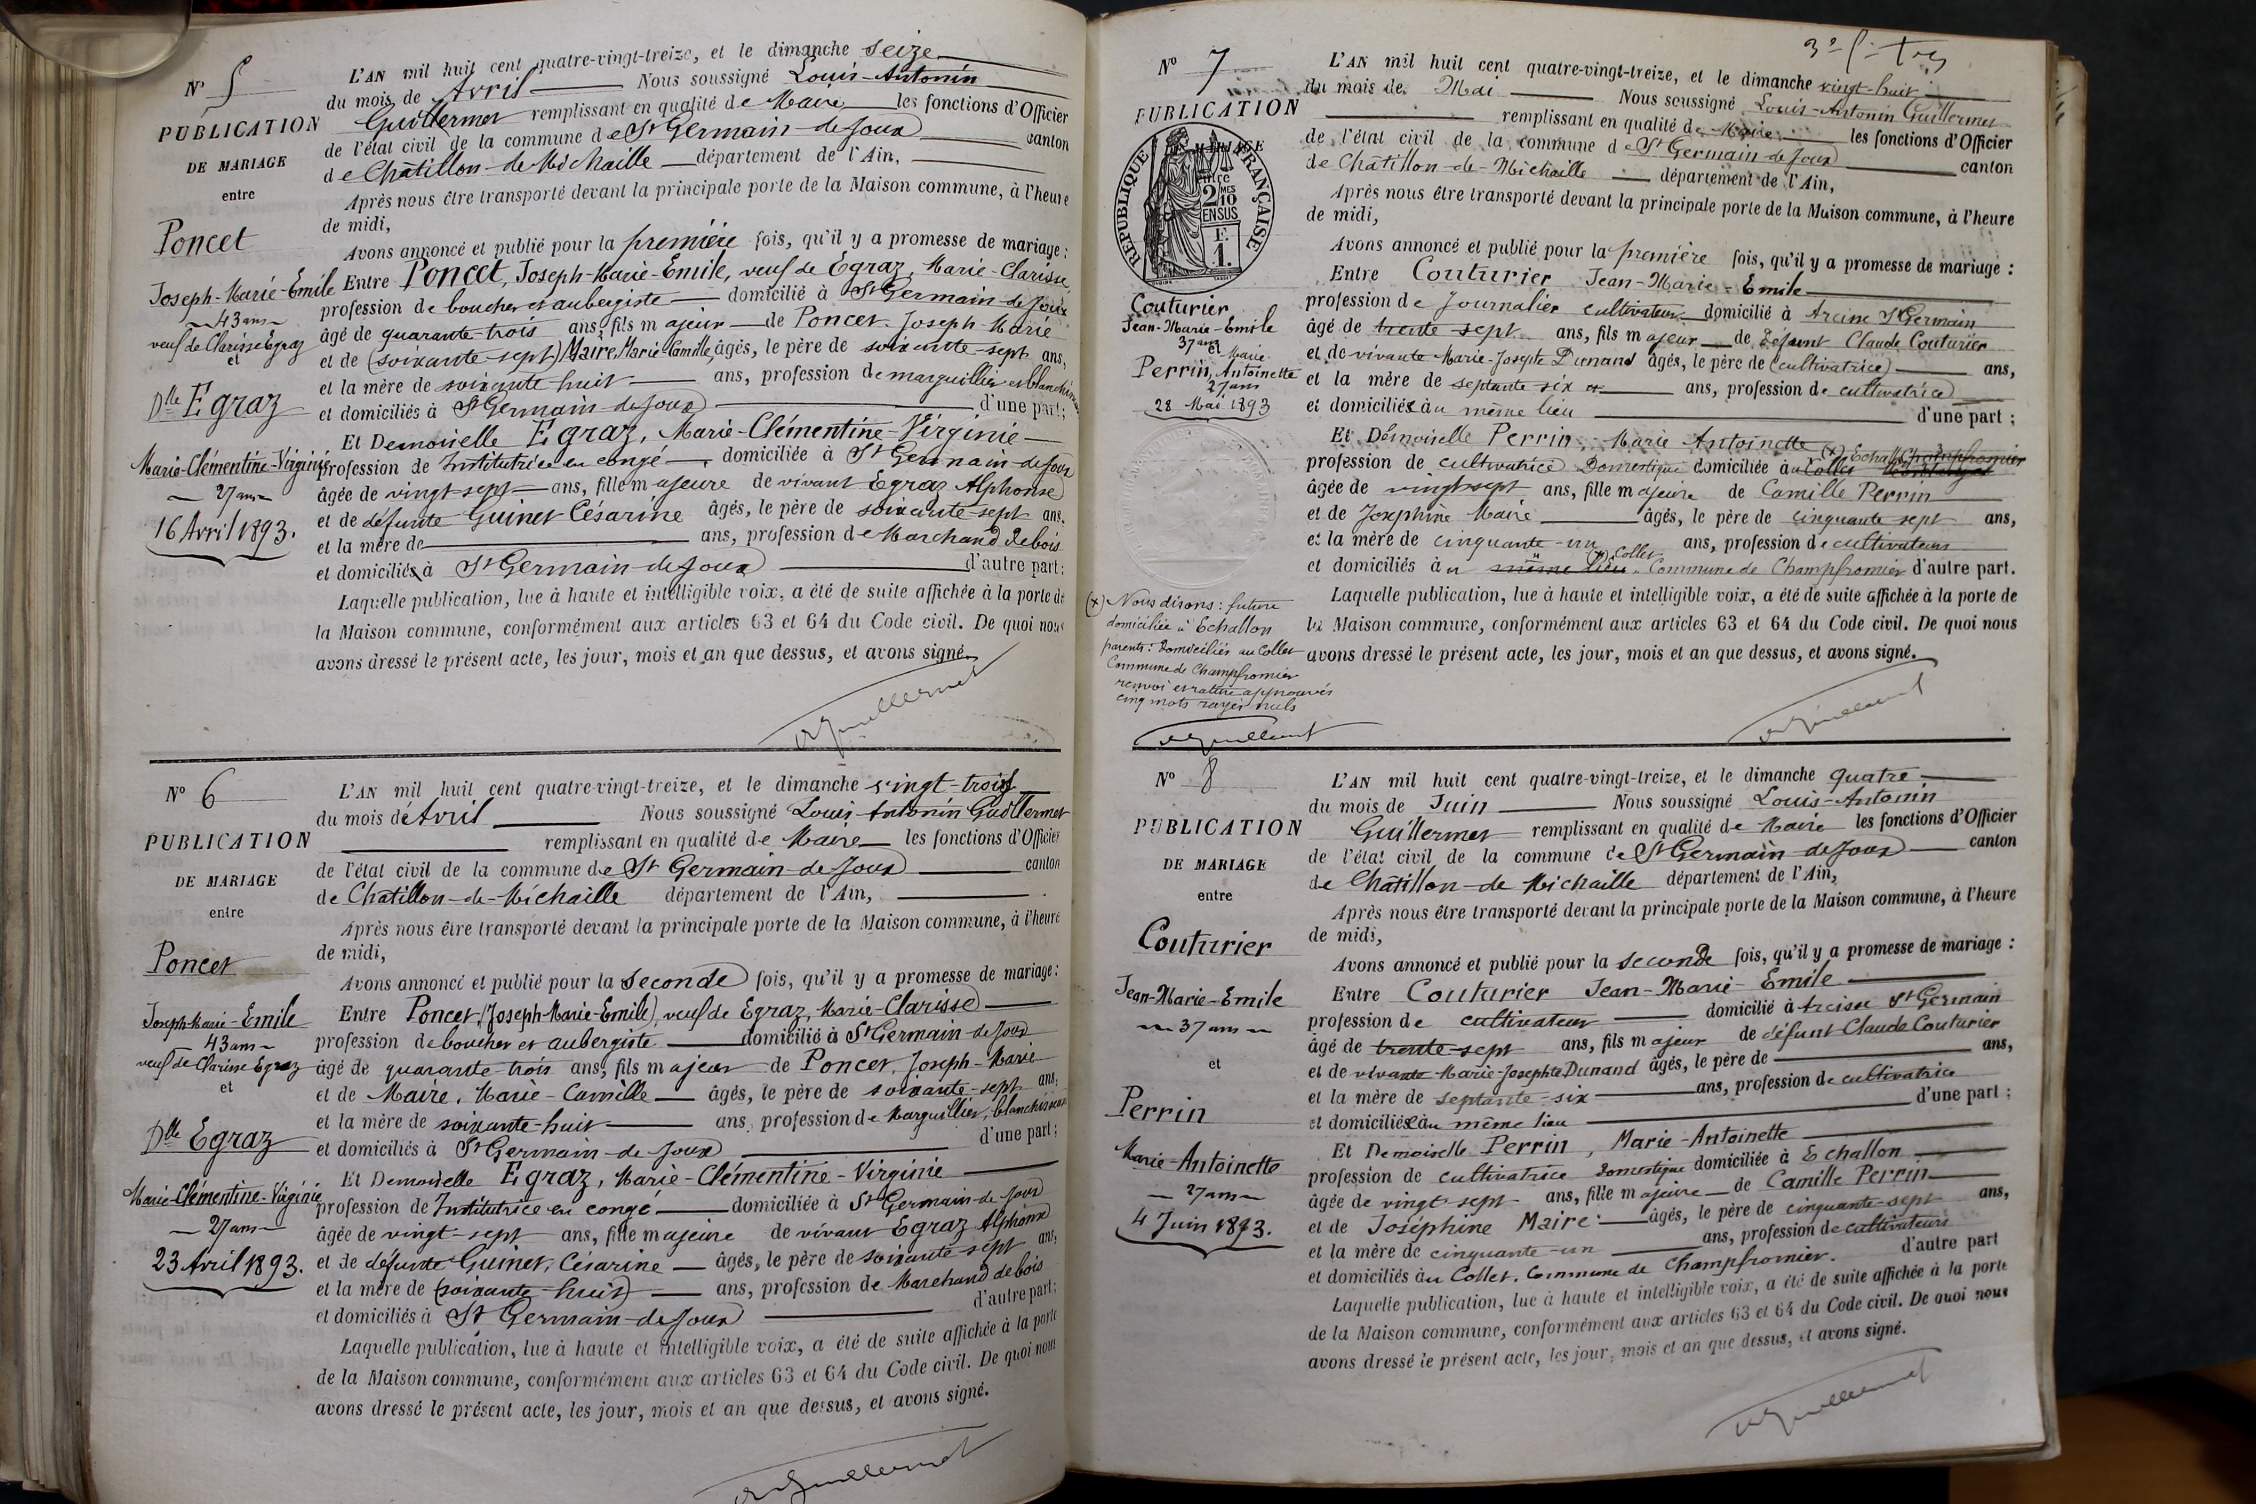 N° 5
PUBLICATION
DE MARIAGE
entre
Poncet
Joseph-Marie-Emile
43 ans
veuf de Clarisse Egraz
et
Dlle Egraz
Marie-Clémentine-Virginie
27 ans
16 Avril 1893.
L'AN mil huit cent quatre-vingt-treize, et le dimanche seize
du mois de Avril Nous soussigné Louis-Antonin
Guillermet remplissant en qualité de Maire les fonctions d'Officier
de l'état civil de la commune de St Germain-de-Joux canton
de Châtillon-de-Michaille département de l'Ain,
Après nous être transporté devant la principale porte de la Maison commune, à l'heure
de midi,
Avons annoncé et publié pour la première fois, qu'il y a promesse de mariage :
Entre Poncet, Joseph-Marie-Emile, veuf de Egraz, Marie-Clarisse
profession de boucher et aubergiste domicilié à St Germain-de-Joux
âgé de quarante-trois ans, fils majeur de Poncet, Joseph-Marie
et de (soixante-sept) Maire, Marie-Camille, âgés, le père de soixante-sept ans,
et la mère de soixante-huit ans, profession de marguillier et blanchisseuse
et domiciliés à St Germain-de-Joux d'une part;
Et Demoiselle Egraz, Marie-Clémentine-Virginie
profession de Institutrice en congé domiciliée à St Germain-de-Joux
âgée de vingt-sept ans, fille majeure de vivant Egraz Alphonse
et de défunte Guinet Césarine âgés, le père de soixante-sept ans.
et la mère de ans, profession de Marchand de bois
et domiciliés à St Germain-de-Joux d'autre part;
Laquelle publication, lue à haute et intelligible voix, a été de suite affichée à la porte de
la Maison commune, conformément aux articles 63 et 64 du Code civil. De quoi nous
avons dressé le présent acte, les jour, mois et an que dessus, et avons signé.
Guillermet
N° 6
PUBLICATION
DE MARIAGE
entre
Poncet
Joseph-Marie-Emile
43 ans
veuf de Clarisse Egraz
et
Dlle Egraz
Marie-Clémentine-Virginie
27 ans
23 Avril 1893.
L'AN mil huit cent quatre-vingt-treize, et le dimanche vingt-trois
du mois de Avril Nous soussigné Louis Antonin Guillermet
remplissant en qualité de Maire les fonctions d'Officier
de l'état civil de la commune de St Germain-de-Joux canton
de Châtillon-de-Michaille département de l'Ain,
Après nous être transporté devant la principale porte de la Maison commune, à l'heure
de midi,
Avons annoncé et publié pour la seconde fois, qu'il y a promesse de mariage :
Entre Poncet, (Joseph-Marie-Emile), veuf de Egraz, Marie-Clarisse
profession de boucher et aubergiste domicilié à St Germain-de-Joux
âgé de quarante-trois ans, fils majeur de Poncet, Joseph-Marie
et de Maire, Marie-Camille âgés, le père de soixante-sept ans,
et la mère de soixante-huit ans, profession de Marguillier, blanchisseuse
et domiciliés à St Germain-de-Joux d'une part;
Et Demoiselle Egraz, Marie-Clémentine-Virginie
profession de Institutrice en congé domiciliée à St Germain-de-Joux
âgée de vingt-sept ans, fille majeure de vivant Egraz Alphonse
et de défunte Guinet, Césarine âgés, le père de soixante-sept ans,
et la mère de (soixante-huit) ans, profession de Marchand de bois
et domiciliés à St Germain-de-Joux d'autre part;
Laquelle publication, lue à haute et intelligible voix, a été de suite affichée à la porte
de la Maison commune, conformément aux articles 63 et 64 du Code civil. De quoi nous
avons dressé le présent acte, les jour, mois et an que dessus, et avons signé.
Guillermet
N° 7
PUBLICATION
DE MARIAGE
entre
RÉPUBLIQUE FRANÇAISE
2 MES
10
EN SUS
F.
1.
Couturier
Jean-Marie-Emile
37 ans
et
Perrin, Marie
Antoinette
27 ans
28 Mai 1893
(x) Nous disons : future
domiciliée à Echallon
parents : Domiciliés au Collet
Commune de Champfromier
renvoi et rature approuvés
cinq mots rayés nuls
Guillermet
L'AN mil huit cent quatre-vingt-treize, et le dimanche vingt-huit
du mois de Mai Nous soussigné Louis-Antonin Guillermet
remplissant en qualité de Maire les fonctions d'Officier
de l'état civil de la commune de St Germain-de-Joux
de Châtillon-de-Michaille département de l'Ain, canton
Après nous être transporté devant la principale porte de la Maison commune, à l'heure
de midi,
Avons annoncé et publié pour la première fois, qu'il y a promesse de mariage :
Entre Couturier Jean-Marie-Emile
profession de Journalier cultivateur domicilié à Arcine St Germain
âgé de trente-sept ans, fils majeur de défunt Claude Couturier
et de vivante Marie-Josephte Dunand âgés, le père de (cultivatrice) ans,
et la mère de septante-six ans, profession de cultivatrice
et domiciliés au même lieu d'une part ;
Et Demoiselle Perrin, Marie Antoinette
profession de cultivatrice Domestique domiciliée à (x) Echallon Collet Champfromier
âgée de vingt sept ans, fille majeure de Camille Perrin
et de Josephine Maire âgés, le père de cinquante sept ans,
et la mère de cinquante-un ans, profession de cultivateurs
et domiciliés au même lieu (x) Collet, Commune de Champfromier d'autre part.
Laquelle publication, lue à haute et intelligible voix, a été de suite affichée à la porte de
la Maison commune, conformément aux articles 63 et 64 du Code civil. De quoi nous
avons dressé le présent acte, les jour, mois et an que dessus, et avons signé.
Guillermet
N° 8
PUBLICATION
DE MARIAGE
entre
Couturier
Jean-Marie-Emile
37 ans
et
Perrin
Marie-Antoinette
27 ans
4 Juin 1893.
L'AN mil huit cent quatre-vingt-treize, et le dimanche quatre
du mois de Juin Nous soussigné Louis-Antonin
Guillermet remplissant en qualité de Maire les fonctions d'Officier
de l'état civil de la commune de St Germain-de-Joux canton
de Châtillon-de-Michaille département de l'Ain,
Après nous être transporté devant la principale porte de la Maison commune, à l'heure
de midi,
Avons annoncé et publié pour la seconde fois, qu'il y a promesse de mariage :
Entre Couturier Jean-Marie-Emile
profession de cultivateur domicilié à Arcine St Germain
âgé de trente-sept ans, fils majeur de défunt Claude Couturier
et de vivante Marie-Josephte Dunand âgés, le père de ans,
et la mère de septante-six ans, profession de cultivatrice
et domiciliés au même lieu d'une part ;
Et Demoiselle Perrin, Marie-Antoinette
profession de cultivatrice Domestique domiciliée à Echallon
âgée de vingt sept ans, fille majeure de Camille Perrin
et de Joséphine Maire âgés, le père de cinquante-sept ans,
et la mère de cinquante-un ans, profession de cultivateurs
et domiciliés au Collet, Commune de Champfromier. d'autre part
Laquelle publication, lue à haute et intelligible voix, a été de suite affichée à la porte
de la Maison commune, conformément aux articles 63 et 64 du Code civil. De quoi nous
avons dressé le présent acte, les jour, mois et an que dessus, et avons signé.
Guillermet